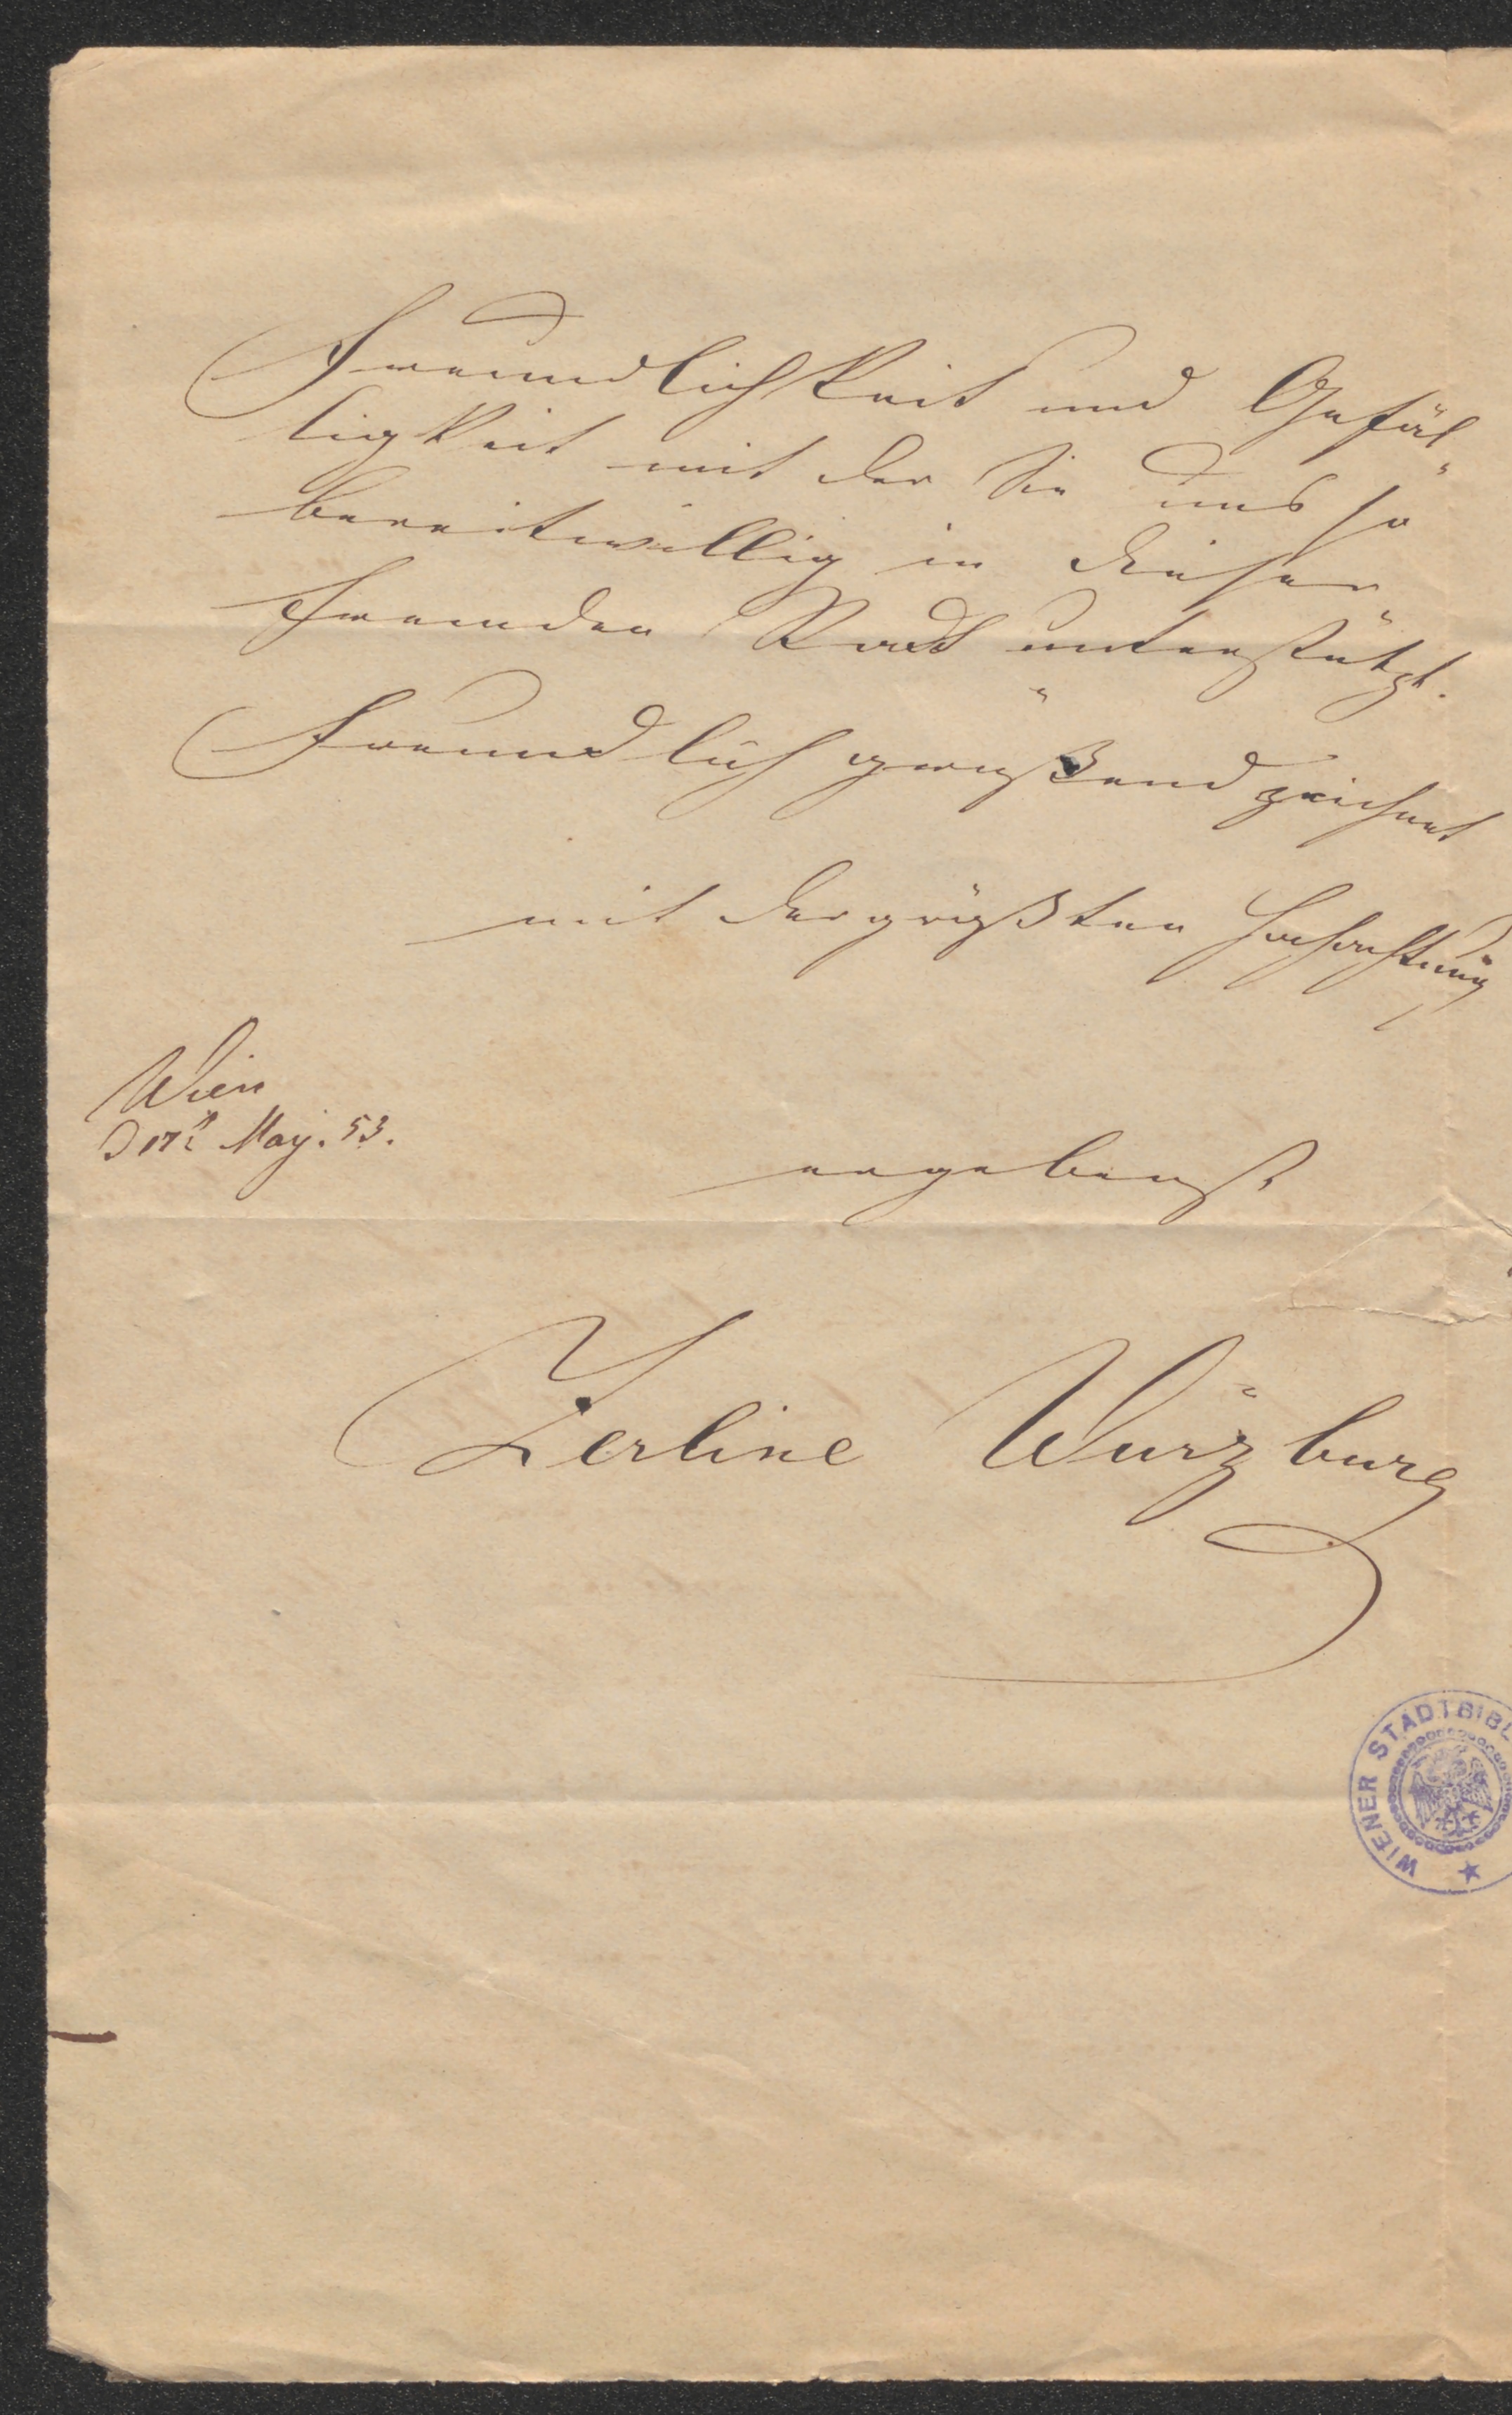 Freundlichkeit und Gefäl„
ligkeit mit der Sie uns so
bereitwillig in dieser
fremden Stadt unterstützt.
Freundlich grüßend zeichnet
mit der größten Hochachtung
Wien
D 17t May. 53.
ergebenst
Zerline Würzburg
WIENER STADTBIBL